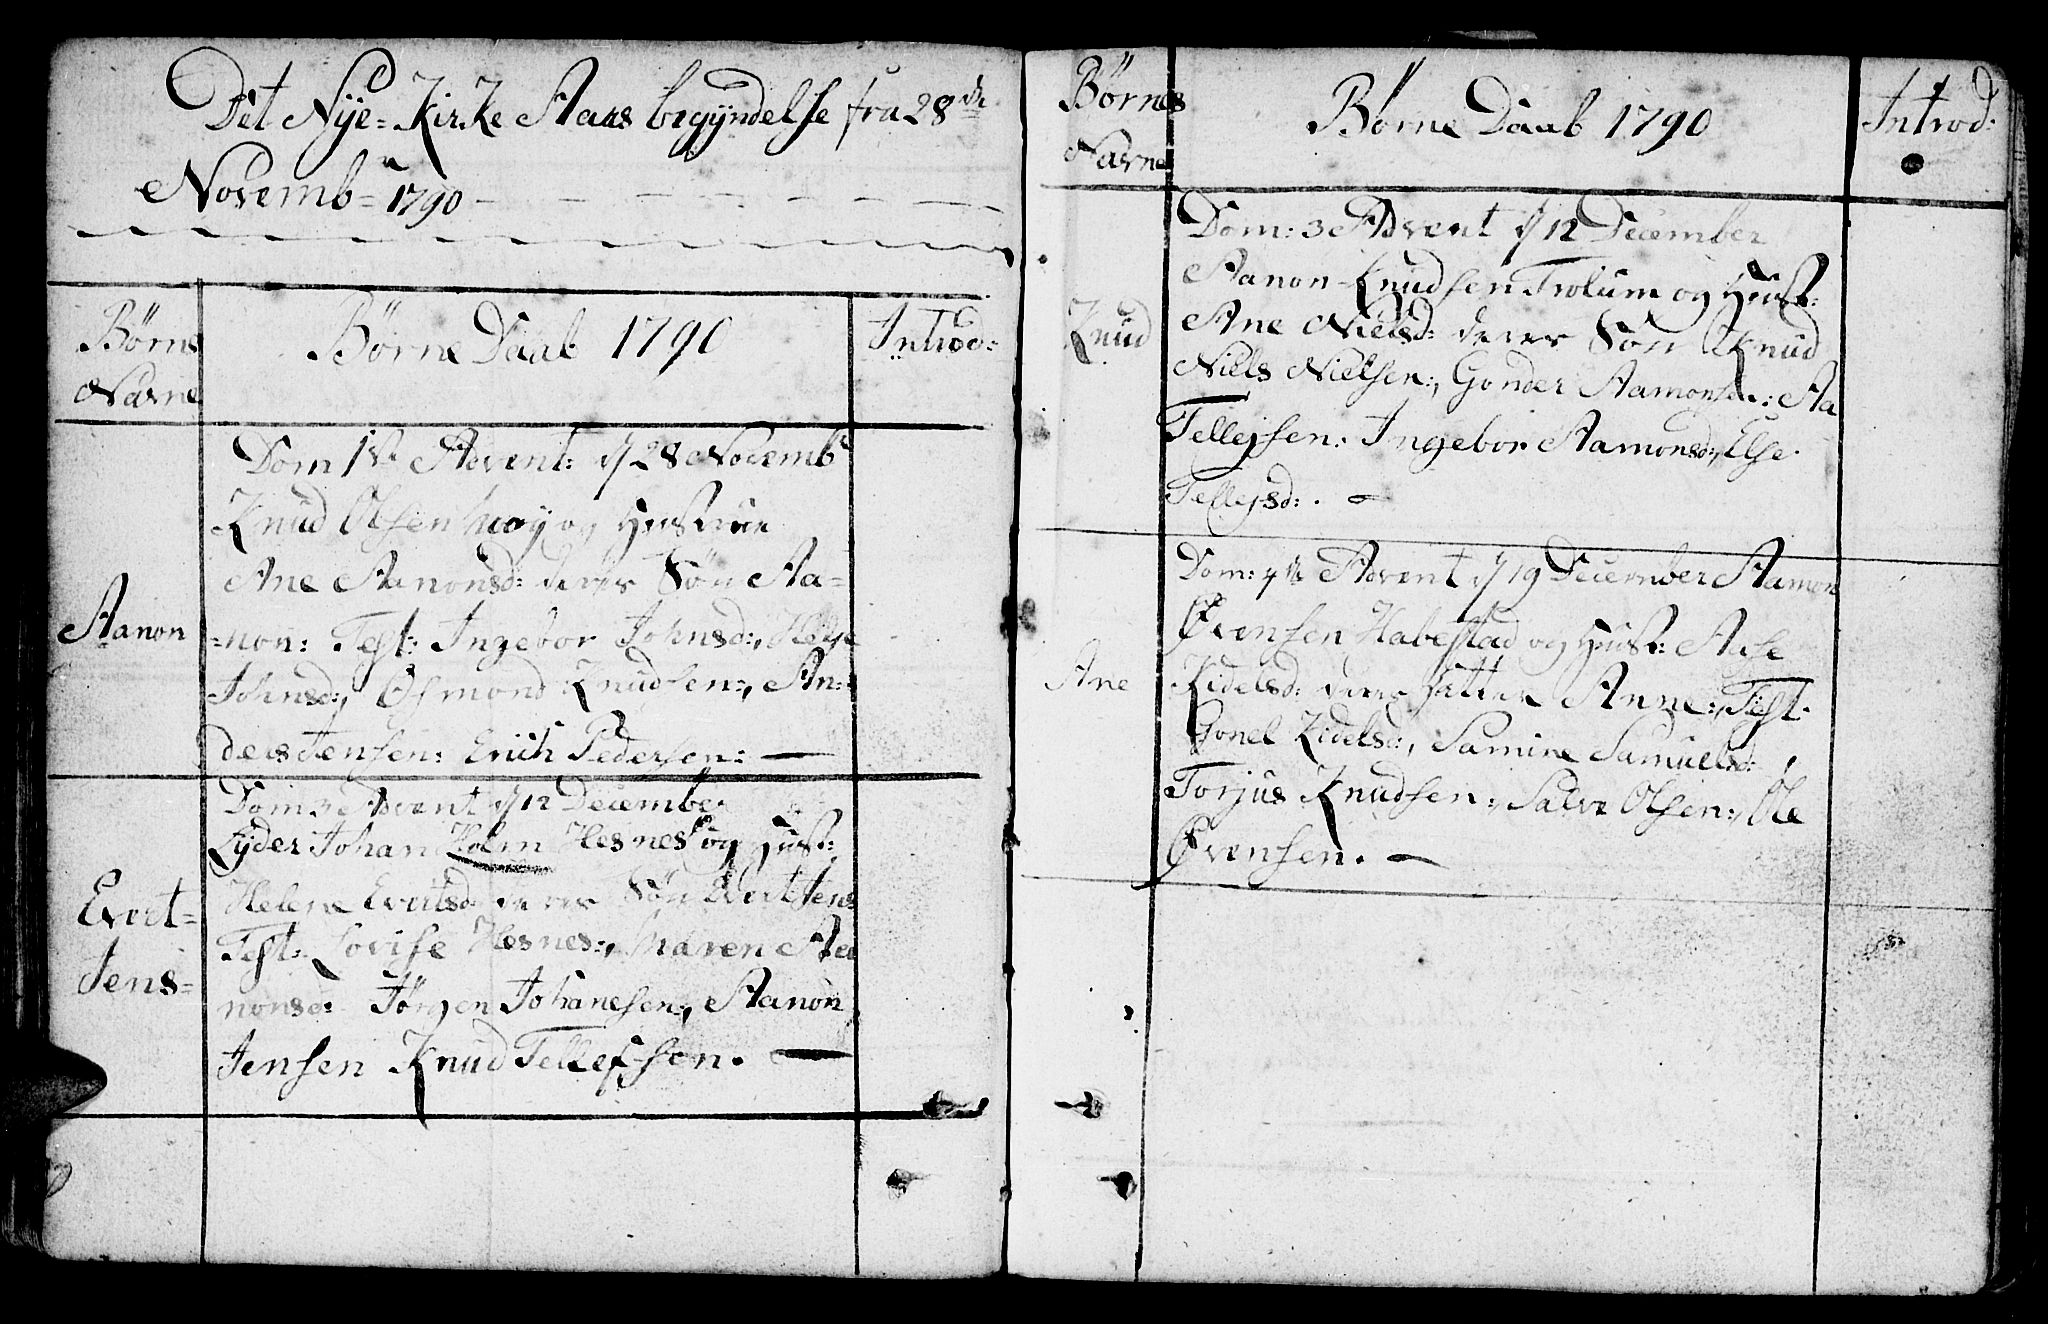 Det Nye-Kirke Aars begyndelse fra 28de
Novemb= 1790
Børns
Navne
Børne Daab 1790
Introd:
Aanon
Dom 1ste Advent: d/ 28 Novemb
Knud Olsen og Hustrue
Ane Aanonsd: deres Søn Aa=
=non: Test: Ingebor Johnsd:, Helje
Johnsd:, Osmond Knudsen:, An=
ders Jensen: Erich Pedersen:
Evert=
Jens=
Dom 3 Advent d/ 12 December
Lyder Johan Holm Hesnes og Hust:
Helene Evertsd: deres Søn Evert Jens
Test: Lovise Hesnes:, Maren Aa
nonsd: Jørgen Johanesen:, Aanon
Jensen Knud Tellefsen.
Børnes
Navne
Børne Daab 1790
Introd:
Knud
Dom: 3 Advent d/ 12 December
Aanon Knudsen Trolum og Hust:
Ane Nielsd: deres Søn Knud
Niels Nielsen:, Gonder Aamonsen: Aa
Tellefsen: Ingebor Aamonsd:, Else
Tellefsd:.
Ane
Dom: 4de Advent d/ 19 December Aamon
Øvensen Habestad og Hust: Aase
Kidelsd: deres datter Anne:, Test:
Gonel Kidelsd:, Samine Samuelsd:,
Torjus Knudsen:, Salve Olsen:, Ole
Øvensen.